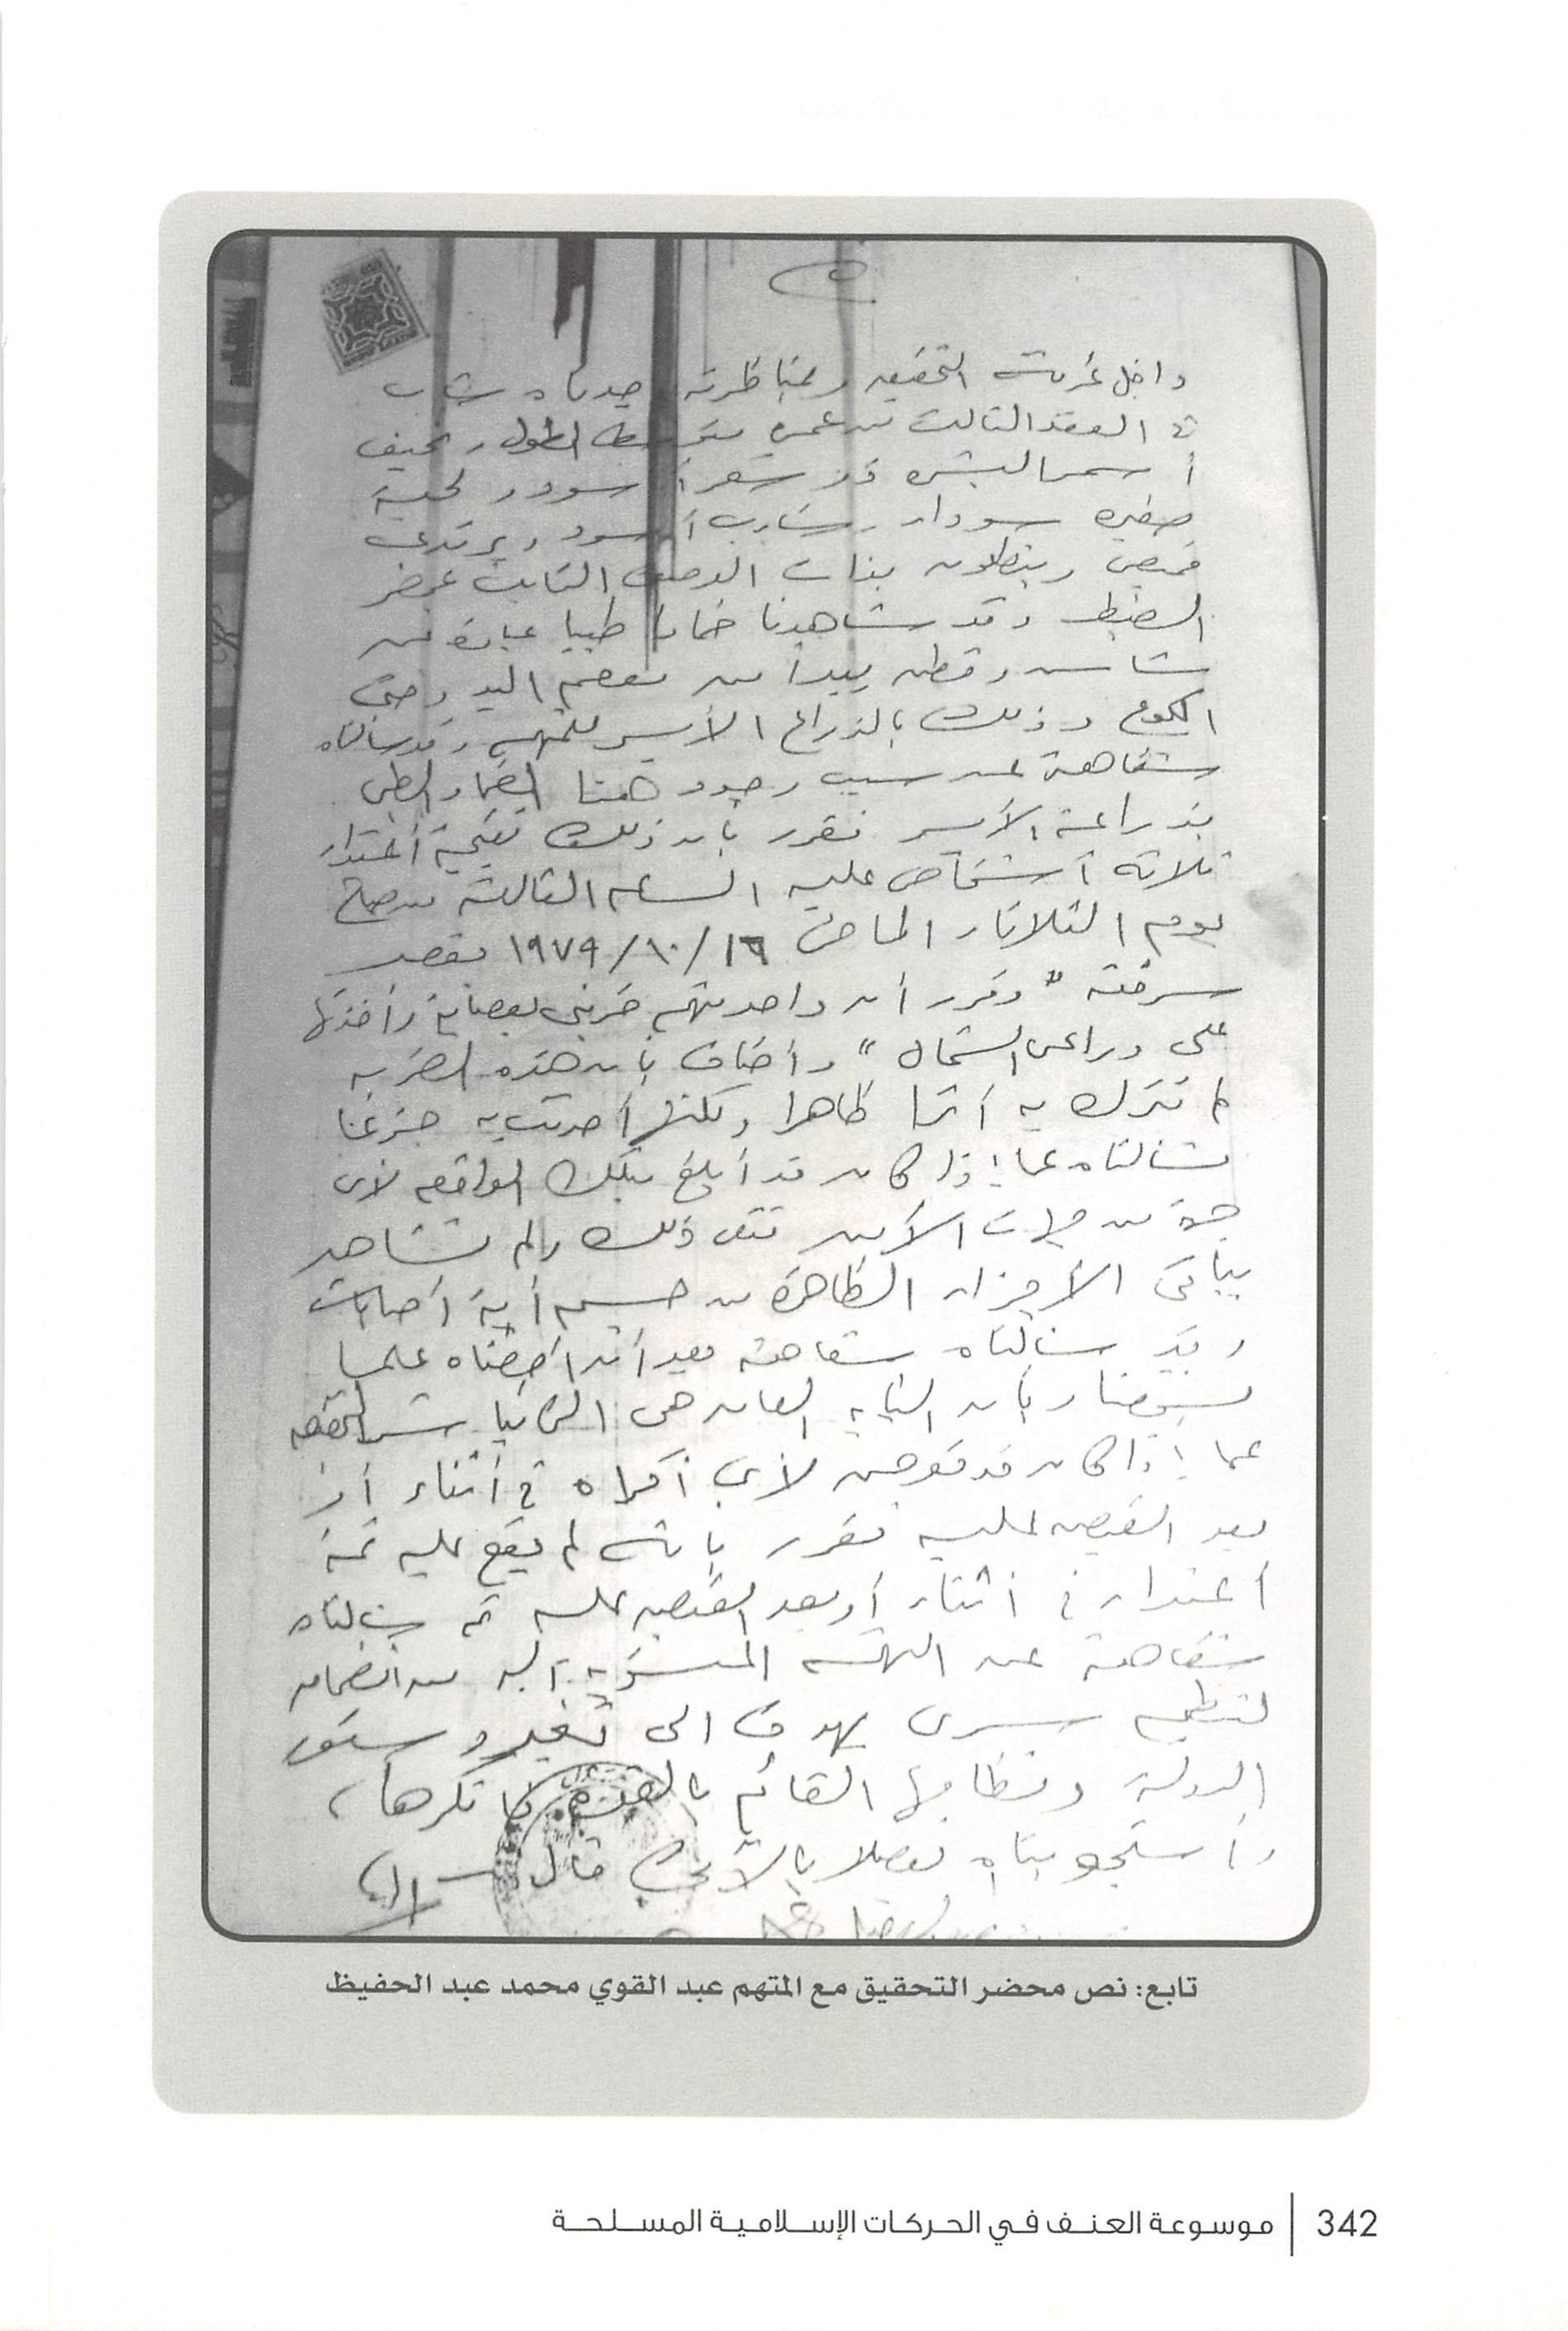 داخل غرفة التحقيق وبمناظرته وجدناه شاب
في العقد الثالث من عمره متوسط الطول ونحيف
أسمر البشرة ذو شعر أسود ولحية
صغيرة سوداء وشارب أسود ويرتدى
قميص وبنطلون بذات الوصف الثابت بمحضر
الضبط وقد شاهدنا ضمادا طبيا عبارة عن
شاش وقطن يبدأ من معصم اليد وحتى
الكوع وذلك بالذراع الأيسر للمتهم وقد سألناه
شفاهة عن سبب وجود هذا الضماد الطبى
بذراعه الأيسر فقرر بأن ذلك نتيجة أعتداء
ثلاثة أشخاص عليه الساعة الثالثة من صباح
يوم الثلاثاء الماضى ١٩٧٩/١٠/١٦ بقصد
سرقته " وقرر أن واحد منهم ضربنى بعصاية وأخذتها
على دراعى الشمال " وأضاف بأن هذه الضربة
لم تترك به أثرا ظاهرا ولكنها أحدثت به جزعا
فسألناه عما إذا كان قد أبلغ بتلك الواقعه لأى
جهة من جهات الأمن فنفى ذلك ولم نشاهد
بباقى الأجزاء الظاهرة من جسمه أية أصابات
وقد سألناه شفاهة بعد أن أحطناه علما
بشخصنا وبأن النيابة العامه هى التى تباشر التحقيق
عما إذا كان قد تعرض لأى أكراه فى أثناء أو
بعد القبض عليه فقرر بأنه لم يقع عليه ثمة
أعتداء فى أثناء أو بعد القبض عليه ثم سألناه
شفاهة عن التهمة المنسوبة اليه من انضمامه
لتنظيم سرى يهدف الى تغيير دستور
الدولة ونظامها القائم بالقوة فأنكرها ،
وأستجوبناه تفصيلا بالآتى قال
تابع: نص محضر التحقيق مع المتهم عبد القوي محمد عبد الحفيظ
342 | موسوعة العنف في الحركات الإسلامية المسلحة